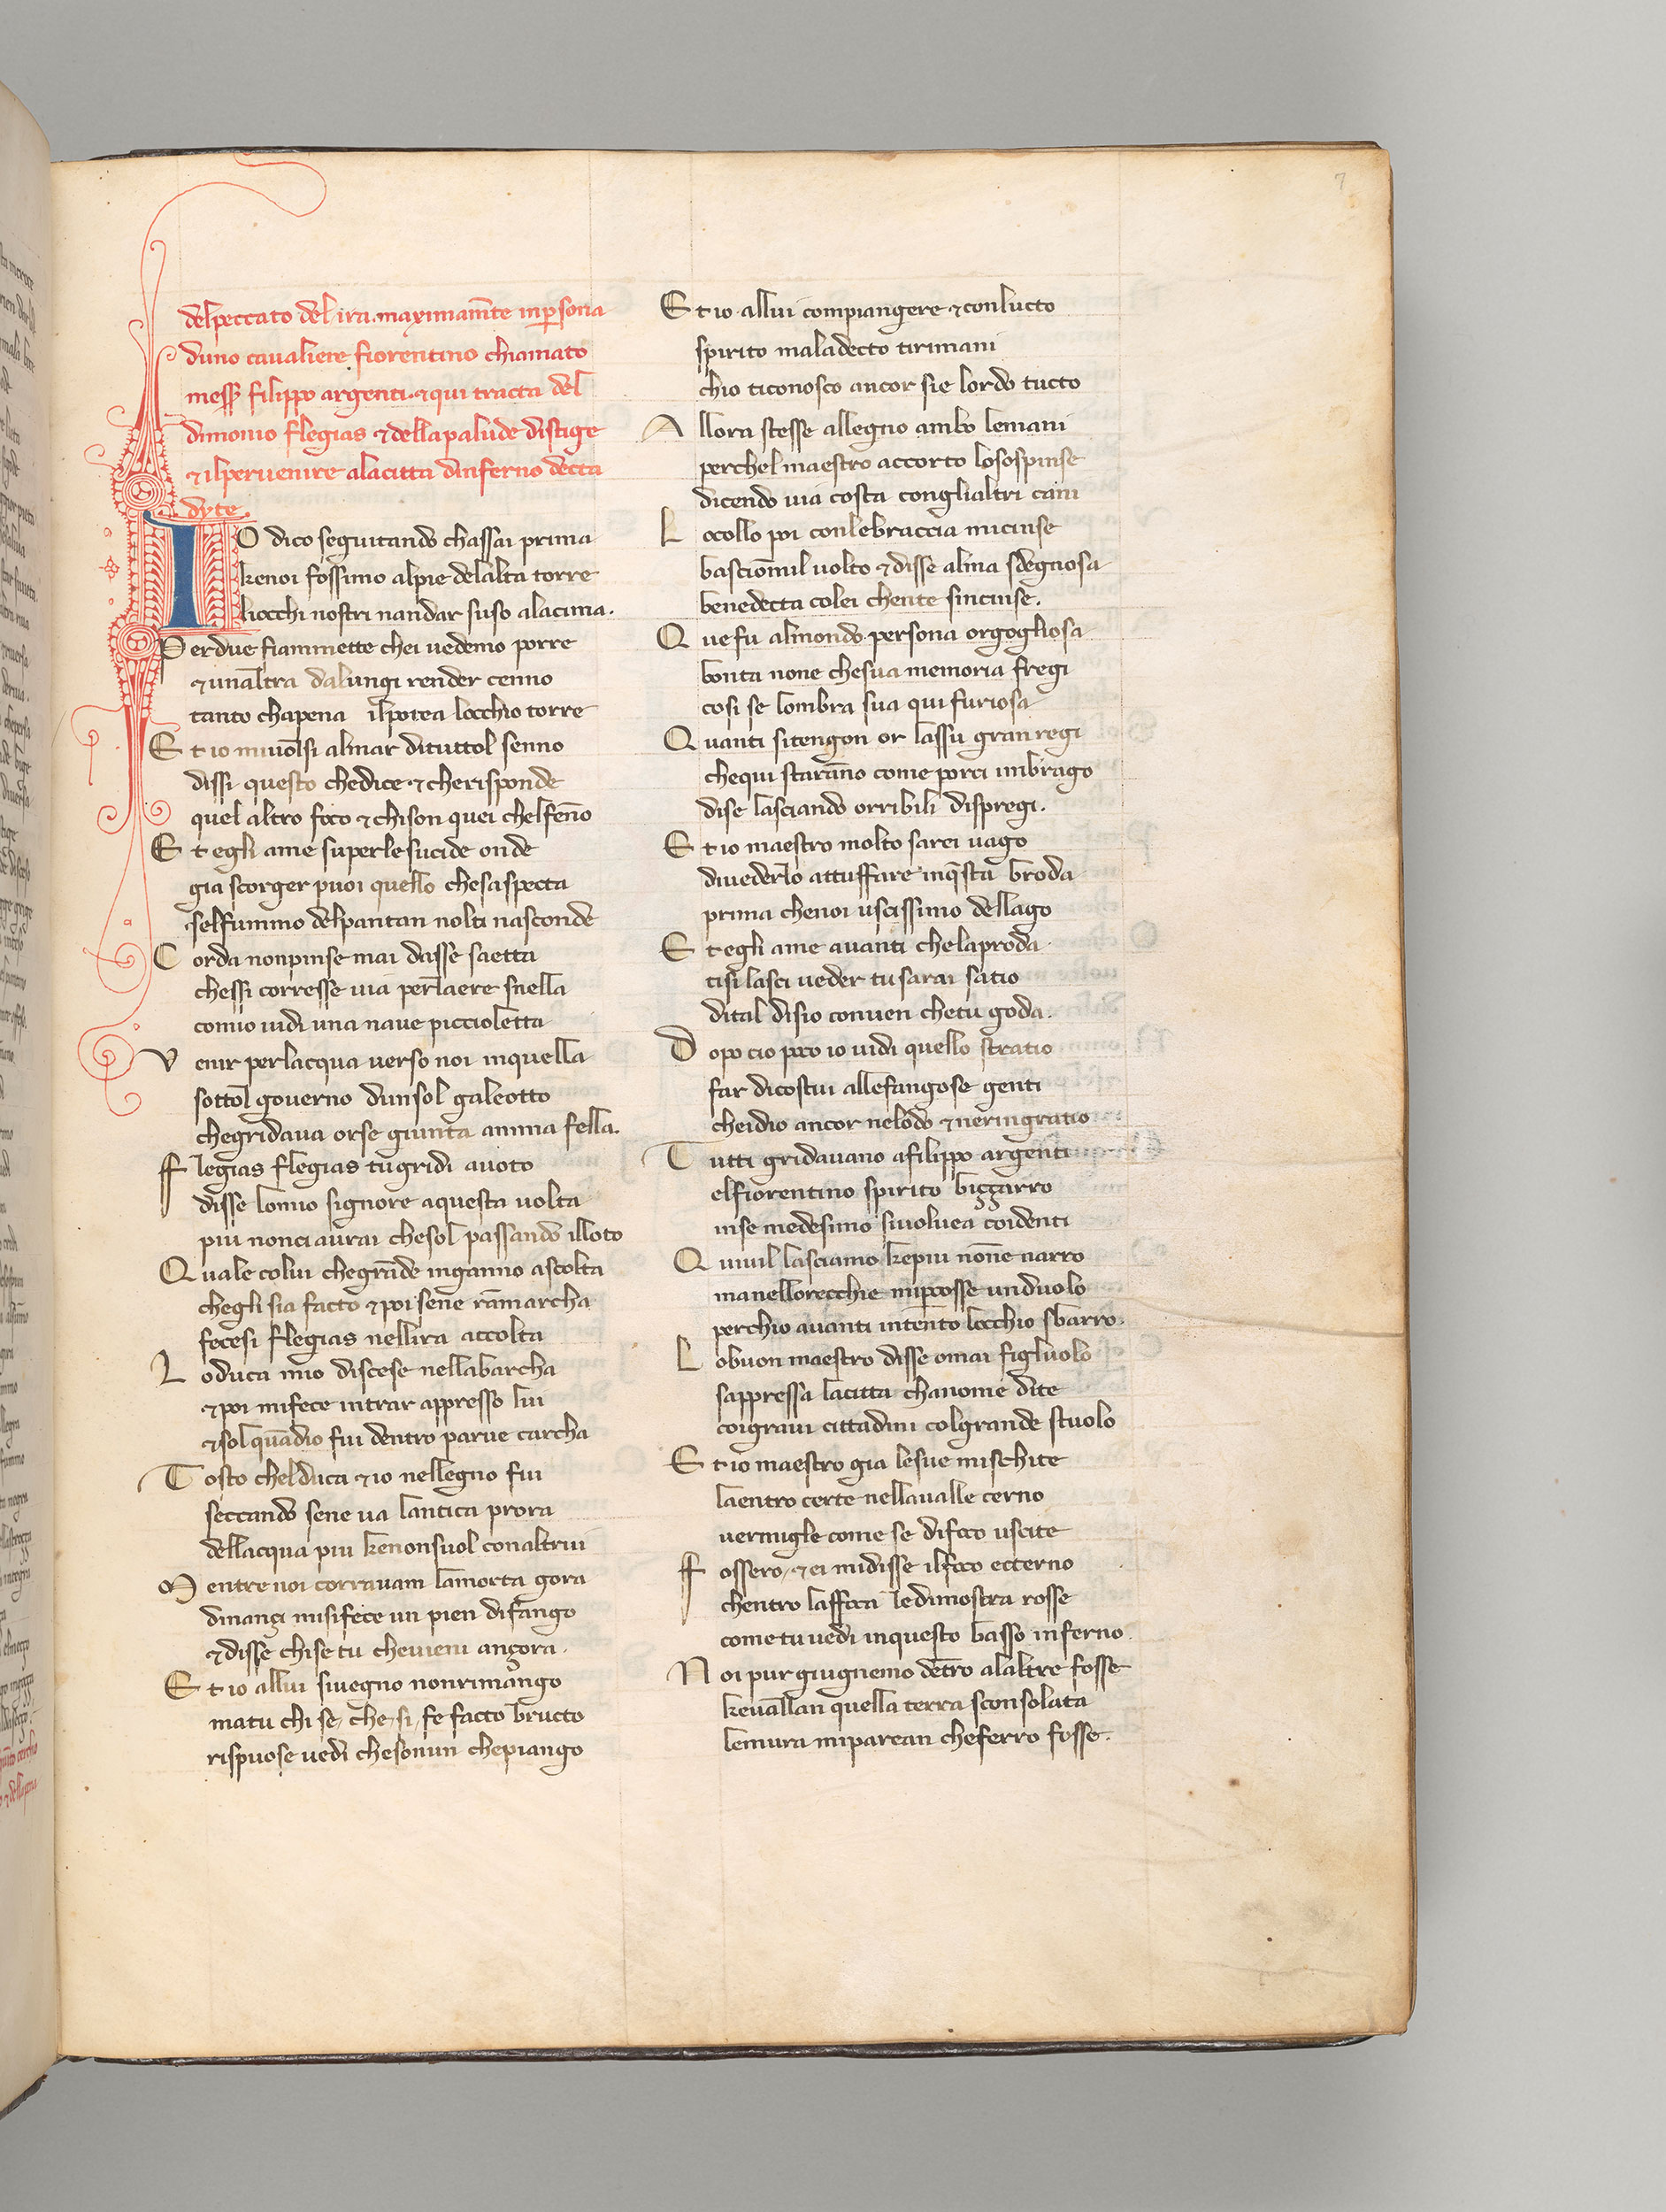 7
del peccato del ira. maximam̄te in p̱sona
duno caualiere fiorentino chiamato
mess̱ filippo argenti. ⁊ qui tracta del
dimonio flegias ⁊ della palude distige
⁊ il peruenire ala citta dinferno decta
dyte.
IO dico seguitando chassai prima
ke noi fossimo alpie delalta torre
liocchi nostri nandar suso ala cima.
Per due fiammette chei uedemo porre
⁊ unaltra dalungi render cenno
tanto chapena il potea locchio torre
Et io miuolsi almar dituttol senno
dissi questo che dice ⁊ che risponde
quel altro foco ⁊ chi son quei chel fen̄o
Et egli ame super le sucide onde
gia scorger puoi quello che saspecta
sel fummo del pantan nolti nasconde
Corda non pinse mai dasse saetta
chessi corresse uia per laere snella
comio uidi una naue piccioletta
Venir per lacqua uerso noi inquella
sottol gouerno dun sol galeotto
che gridaua or se giunta anima fella.
Flegias flegias tu gridi auoto
disse lomio signore aquesta uolta
piu non ci aurai che sol passando illoto
Quale colui che grāde inganno ascolta
che gli sia facto ⁊ poi sene rāmarcha
fecesi flegias nellira accolta
Loduca mio discese nella barcha
⁊ poi mi fece intrar appresso lui
⁊ sol quādio fui dentro parue carcha
Tosto chel duca ⁊ io nellegno fui
seccando sene ua lantica prora
dellacqua piu ke non suol con altrui
Mentre noi corrauam la morta gora
dinançi misi fece un pien di fango
⁊ disse chi se tu che uieni ançora.
Et io allui siuegno non rimango
ma tu chi se, che, si, fe facto bructo
rispuose uedi che son un che piango
Et io allui com piangere ⁊ con lucto
spirito maladecto tirimani
chio ticonosco ancor sie lordo tucto
Allora stesse allegno ambo lemani
per chel maestro accorto lo sospinse
dicendo uia costa con glialtri cani
Locollo poi con lebraccia micinse
basciom̄mil uolto ⁊ disse alma sdegnosa
benedecta colei chente sincinse.
Que fu almondo persona orgogliosa
bonta none che sua memoria fregi
cosi se lombra sua qui furiosa
Quanti sitengon or lassu gran regi
che qui starāno come porci imbrago
dise lasciando orribili dispregi.
Et io maestro molto sarei uago
diuederlo attuffare inq̄sta broda
prima che noi uscissimo dellago
Et egli ame auanti che laproda
tisi lasci ueder tu sarai satio
dital disio conuen che tu goda.
Dopo cio poco io uidi quello stratio
far dicostui alle fangose genti
che idio ancor nelodo ⁊ neringratio
Tutti gridauano afilippo argenti
el fiorentino spirito biççarro
inse medesimo siuoluea coidenti
Quiuil lasciamo kepiu nōne narro
ma nellorecchie mip̱cosse unduolo
perchio auanti intento locchio sbarro.
Lobuon maestro disse omai figluolo
sappressa lacitta cha nome dite
coigraui cittadini colgrande stuolo
Et io maestro gia lesue mischite
laentro certe nella ualle cerno
uermigle come se difoco uscite
Fossero, ⁊ ei midisse il foco ecterno
chentro laffoca le dimostra rosse
come tu uedi inquesto basso inferno.
Noi pur giugnemo dētro alaltre fosse
keuallan quella terra sconsolata
lemura miparean che ferro fosse.